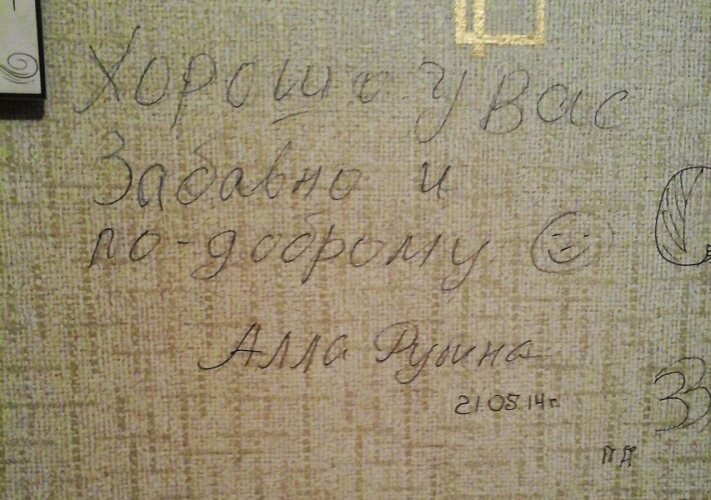 Хорошо у вас
Забавно и
по-доброму
Алла
21.05.14г.
ПД